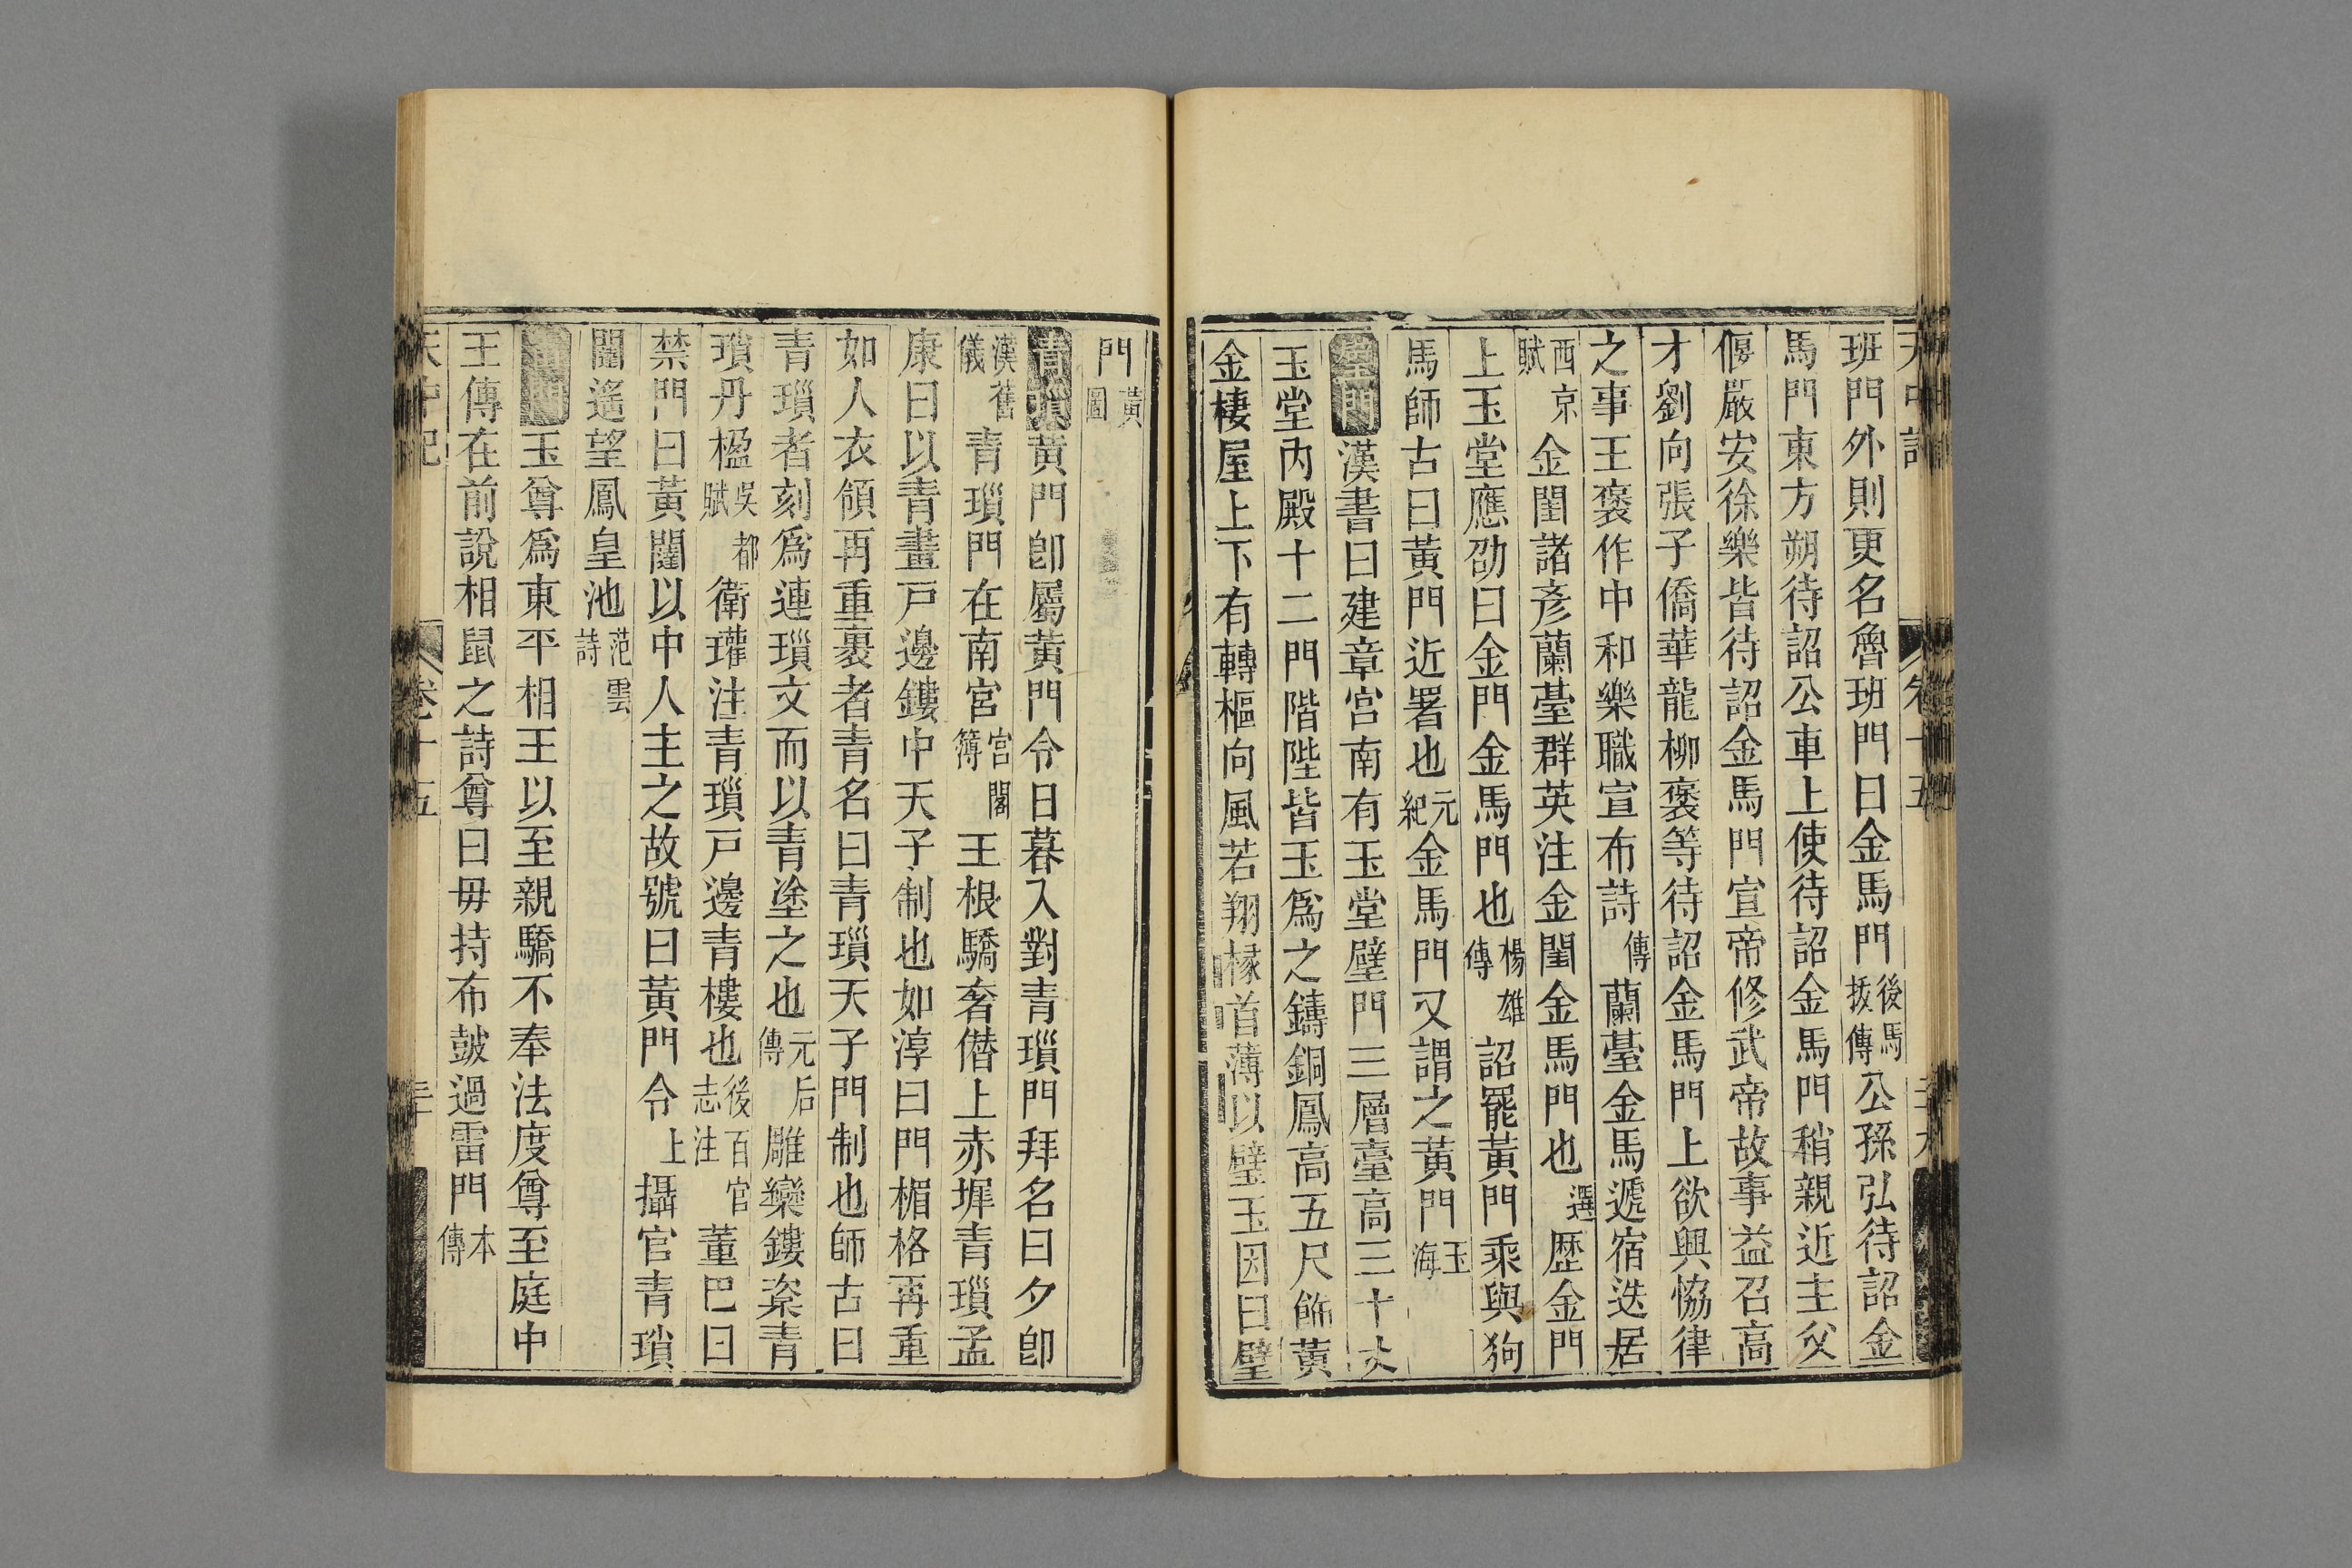 天中記 卷十五
班門外則更名魯班門曰金馬門後馬援傳公孫弘待詔金
馬門東方朔待詔公車上使待詔金馬門稍親近主父
偃嚴安徐樂皆待詔金馬門宣帝修武帝故事益召高
才劉向張子僑華龍柳褒等待詔金馬門上欲興恊律
之事王褒作中和樂職宣布詩傳蘭臺金馬遞宿迭居
西京賦金閨諸彥蘭臺群英注金閨金馬門也選歷金門
上玉堂應劭曰金門金馬門也楊雄傳詔罷黃門乘輿狗
馬師古曰黃門近署也元紀金馬門又謂之黃門玉海
璧門漢書曰建章宮南有玉堂壁門三層臺高三十丈
玉堂內殿十二門階陛皆玉爲之鑄銅鳳高五尺飾黃
金棲屋上下有轉樞向風若翔椽首薄以璧玉因曰璧
門黃圖
青瑣黃門卽屬黃門令日暮入對青瑣門拜名曰夕卽
漢舊儀青瑣門在南宮宮閣簿王根驕奢僣上赤墀青瑣孟
康曰以青畫戸邊鏤中天子制也如淳曰門楣格再重
如人衣領再重裹者青名曰青瑣天子門制也師古曰
青瑣者刻爲連瑣文而以青塗之也元后傳雕欒鏤楶青
瑣丹楹吳都賦衛瓘注青瑣戸邊青樓也後百官志注董巴曰
禁門曰黃闥以中人主之故號曰黃門令上攝官青瑣
闥遙望鳳皇池范雲詩
雷門玉尊爲東平相王以至親驕不奉法度尊至庭中
王傳在前說相鼠之詩尊曰毋持布皷過雷門本傳
天中記 卷十五 三十